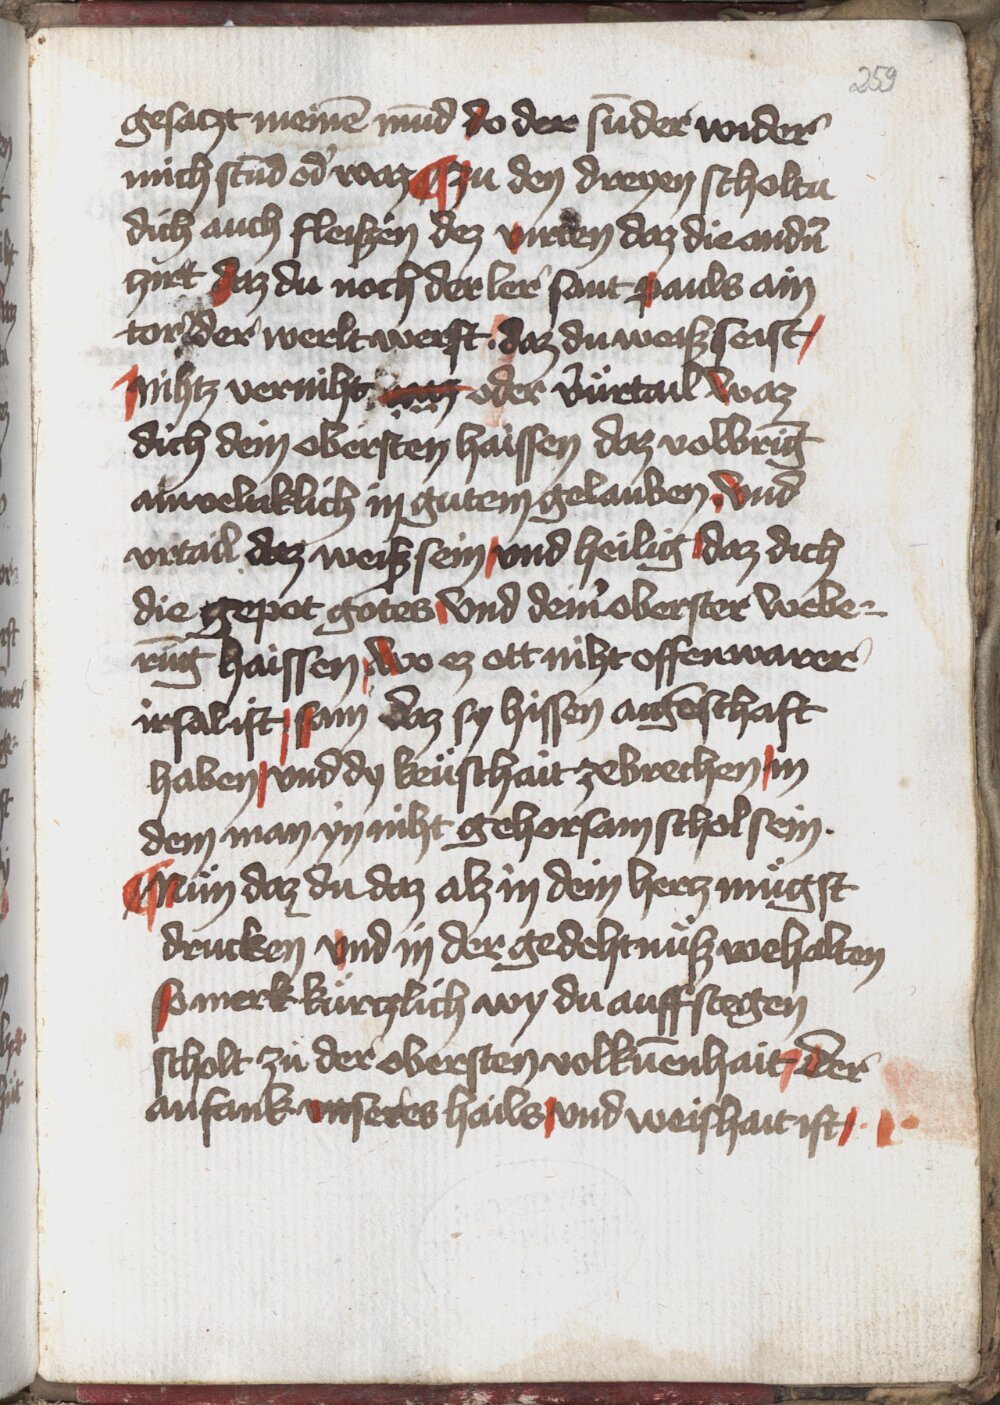 259
gesatzt meinē mūd do der sūder wider
mich stūd od' waz ¶ Zu den dreyen scholtu
dich auch fleiszen dez virden daz die andn̄
zirt daz du noch der ler sant pauls ain
tor der werlt werst · daz du weisz seist
nihtz verniht oder v̈rtail waz
dich dein obersten haissen daz volbring
ainveltiklich in gutem gelauben vnd
vrtail daz weisz sein vnd heilig daz dich
die gepot gotes vnd dein' oberster webe-
rūg haissen wo ez ott niht offenwarer
irsal ist sam daz sy hissen aigēschaft
haben vnd dy keüschait zebrechen in
dem man yn niht gehorsam schol sein .
¶ Nün daz du daz alz in dein hertz mügst
drucken vnd in der gedehtnüsz wehalten
so merk kürtzlich wy du auffstegen
scholt zu der obersten volkūenhait Der
anfank vnseres hails vnd weishait ist